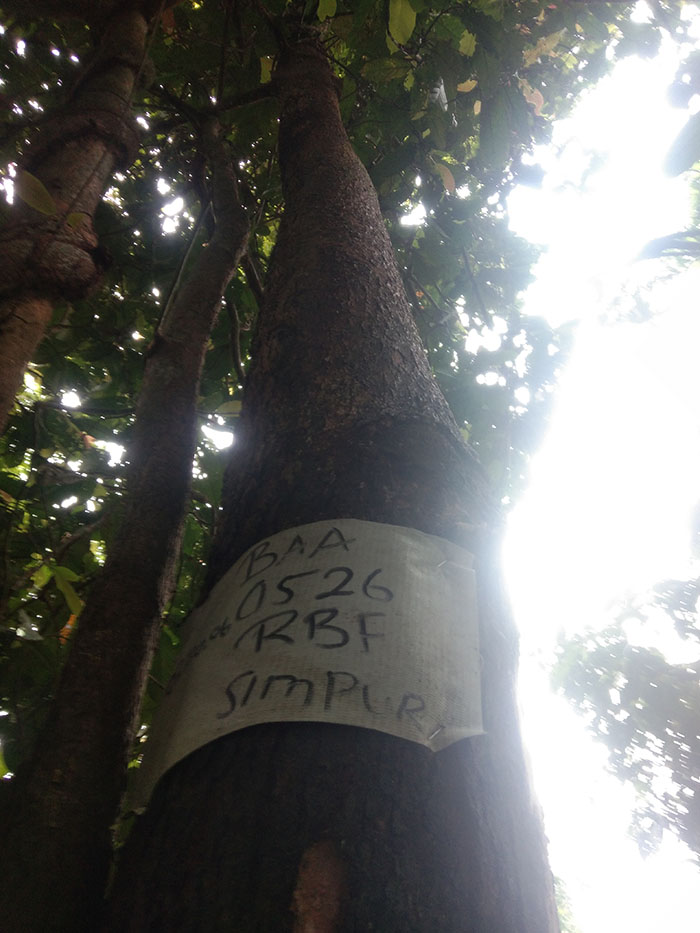 BAA
0526
RBF
SIMPUR